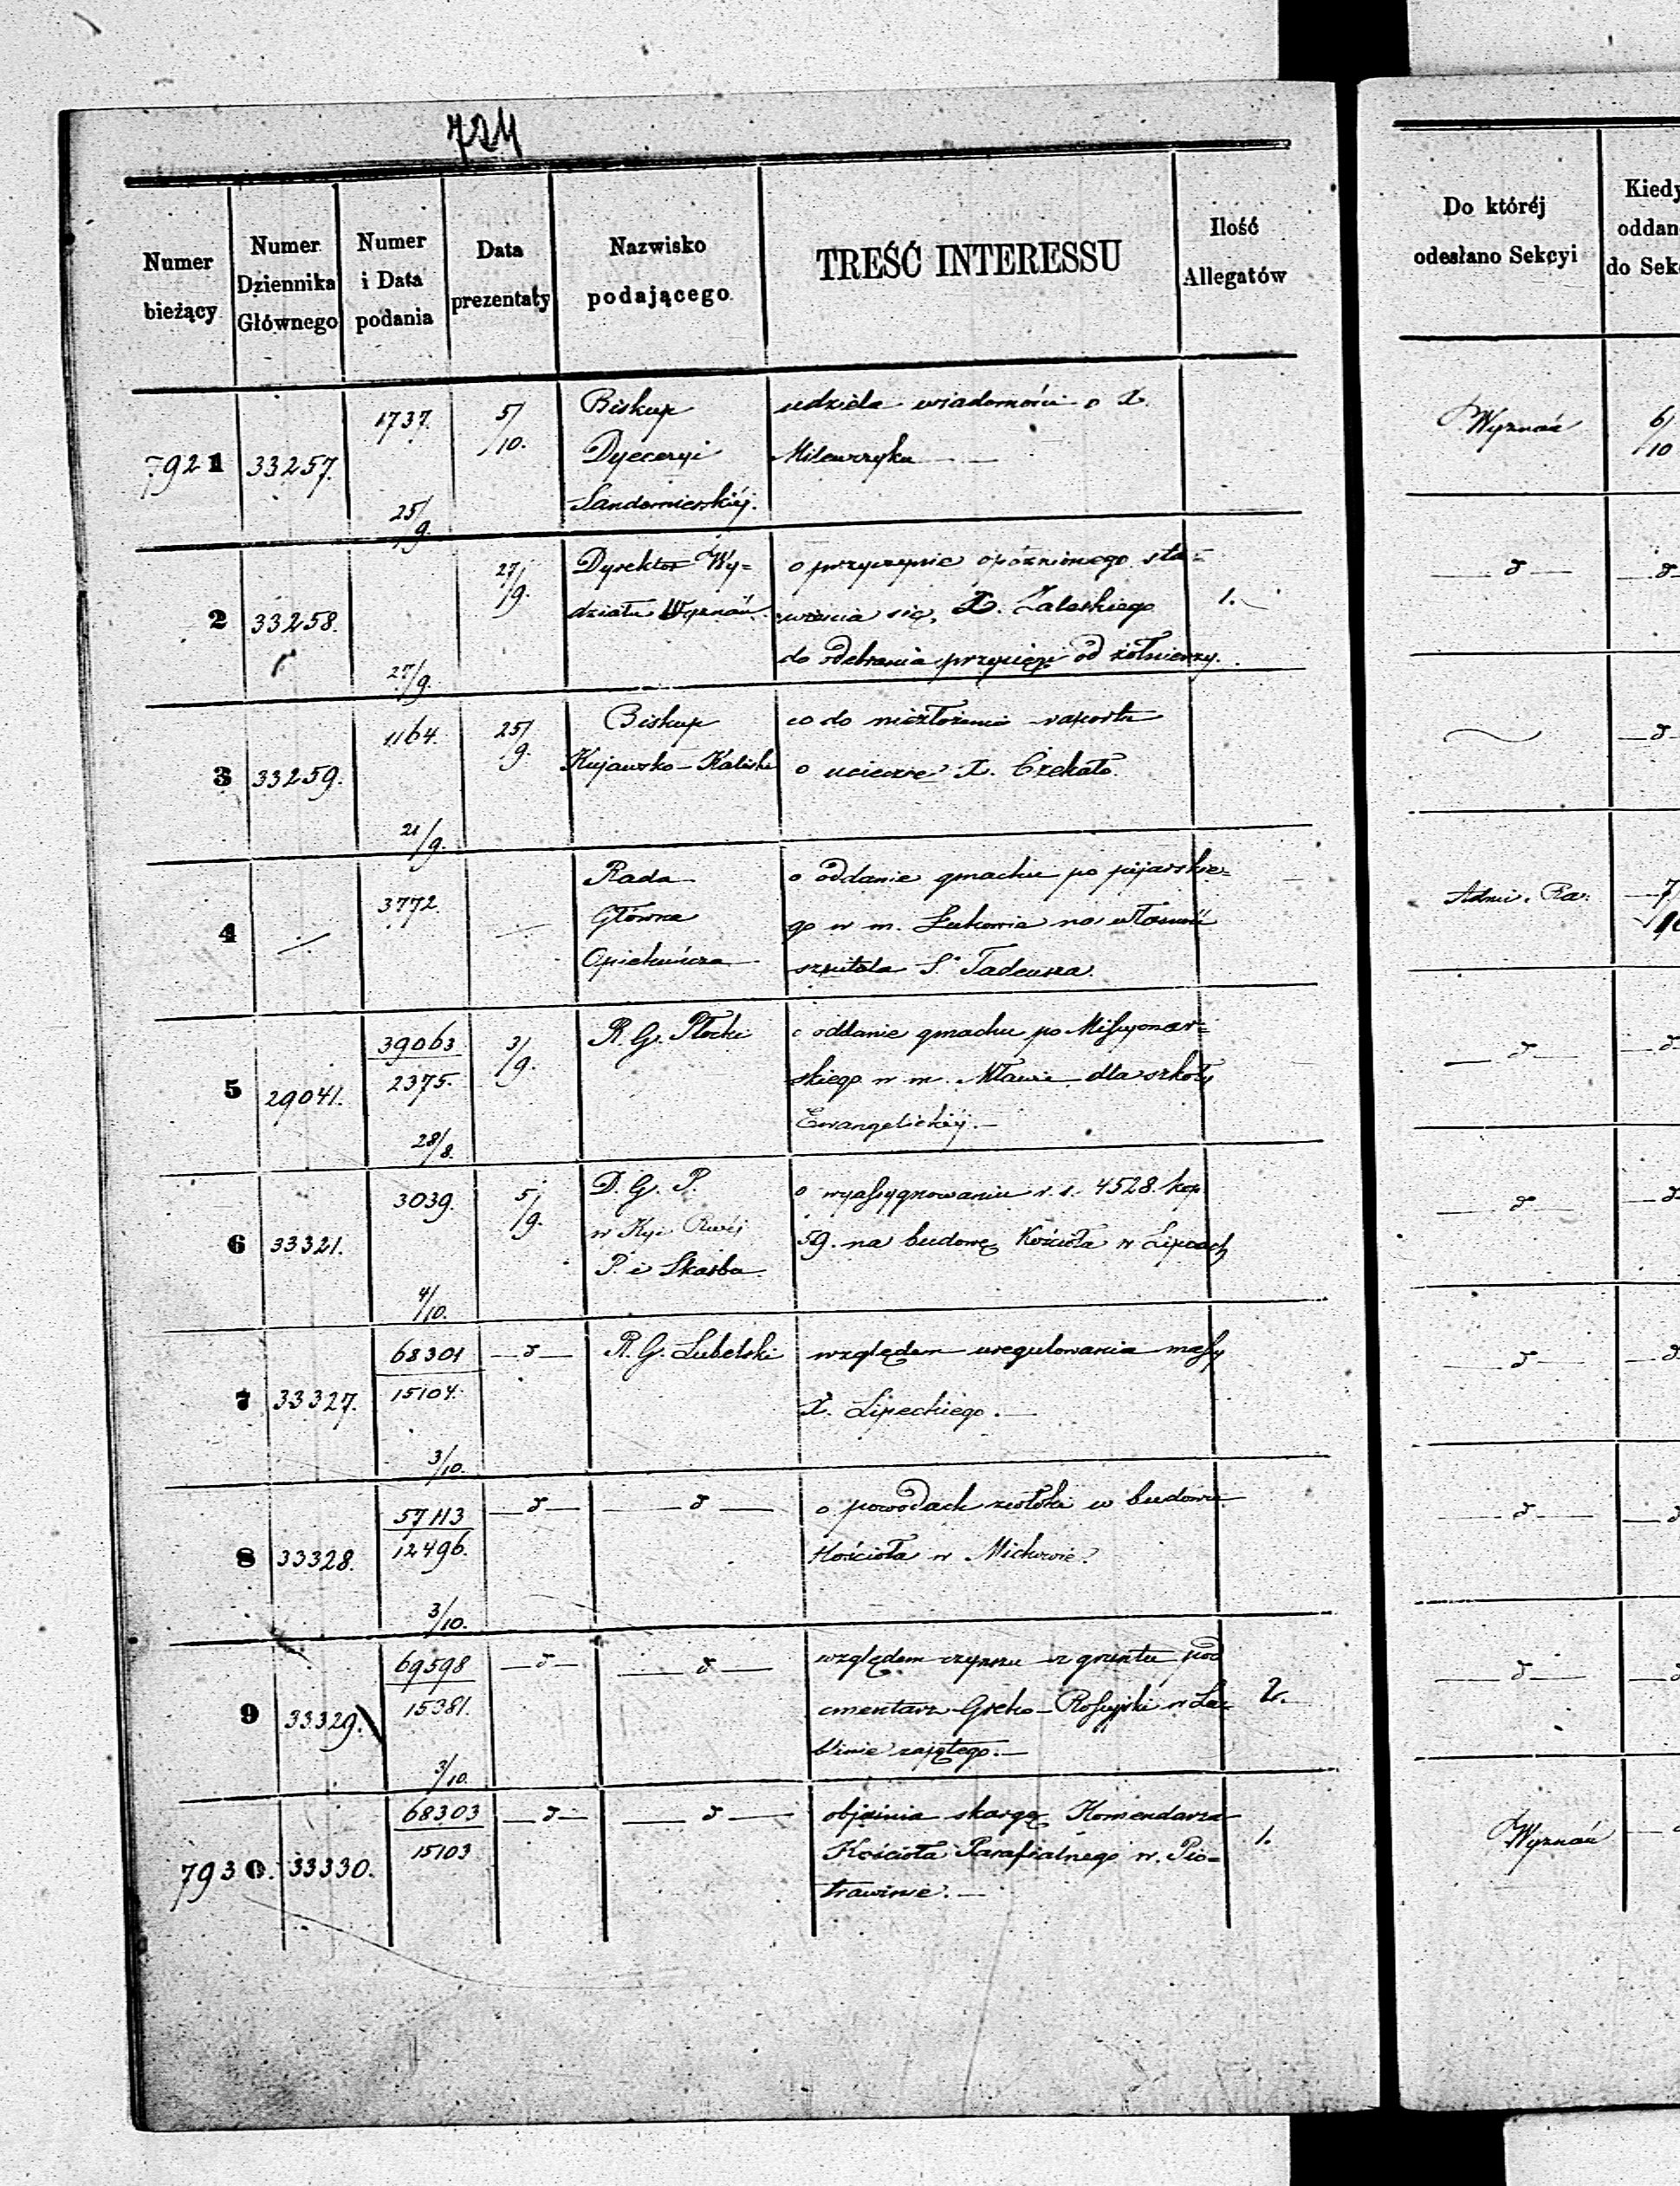 724
Numer bieżący
Numer Dziennika Głównego
Numer i Data podania
Data prezentaty
Nazwisko podającego
TREŚĆ INTERESSU
Ilość Allegatów
Do któréj odesłano Sekcyi
Kiedy oddan do Sek
7921 33257. 1737. 25/9. 5/10.
Biskup
Dyecezyi
Sandomierskiéj.
udziela wiadomości o X.
Milewrzyku —
Wyznań 6/10
2 33258. 27/9. 27/9.
Dyrektor Wy=
działu Wyznań.
o przyczynie opóźnionego sta=
wienia się, X. Zaleskiego
do odebrania przysięgi od żołnierzy.
1.
— d — — d
3 33259. 1164. 21/9. 25/9.
Biskup
Kujawsko-Kaliski
co do niezłożenia raportu
o ucieczce X. Czekało.
— d —
4 — 3772. —
Rada
Główna
Opiekuńcza
o oddanie gmachu po pijarskie=
go w m. Łukowie na własność
szpitala S. Tadeusza.
Admi. Ra. 7/10
5 29041. 39063 2375. 28/8. 3/9.
R. G. Płocki
o oddanie gmachu po Missyonar=
skiego w m. Mławie dla szkoły
Ewangelickiéj. —
— d — — d
6 33321. 3039. 4/10. 5/9.
D. G. P.
w Kom. Rząd.
P. i Skarbu.
o wyassygnowaniu r. s. 4528. kop.
59. na budowę Kościoła w Lipcach
— d — — d
7 33327. 68301 15104. 3/10. — d —
R. G. Lubelski
względem uregulowania massy
X. Lipeckiego. —
— d — — d
8 33328. 57113 12496. 3/10. — d — — d —
o powodach zwłoki w budowie
Kościoła w Michowie.
— d — — d
9 33329. 69598 15381. 3/10. — d — — d —
względem czynszu z gruntu pod
cmentarz Greko-Rossyjski w Lu=
blinie zajętego. —
2.
— d — — d
7930. 33330. 68303 15103 — d — — d —
objaśnia skargę Komendarza
Kościoła Parafialnego w Pio=
trawinie. —
1.
Wyznań —